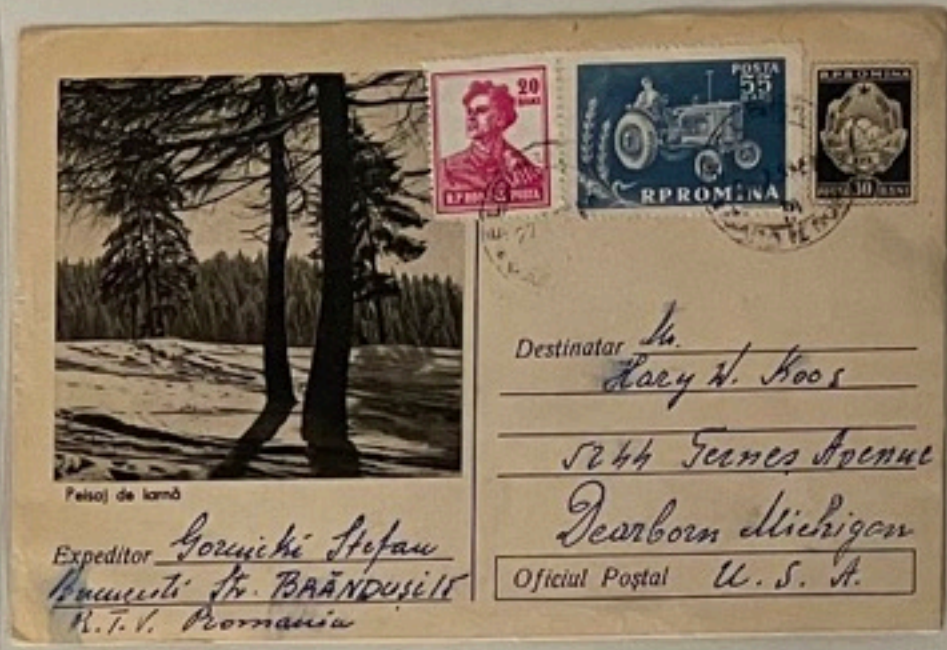 20
BANI
R.P.ROMINA POSTA
POSTA
55
BANI
R.P.ROMINA
R.P.ROMINA
POSTA 30 BANI
Peisaj de iarnă
Destinatar Mr.
Hary W. Koos
5244 Ternes Avenue
Dearborn Michigan
Oficiul Poștal U. S. A.
Expeditor Gornicki Stefan
Bucuresti Str. BRÂNDUȘI
R. T. V. Romania